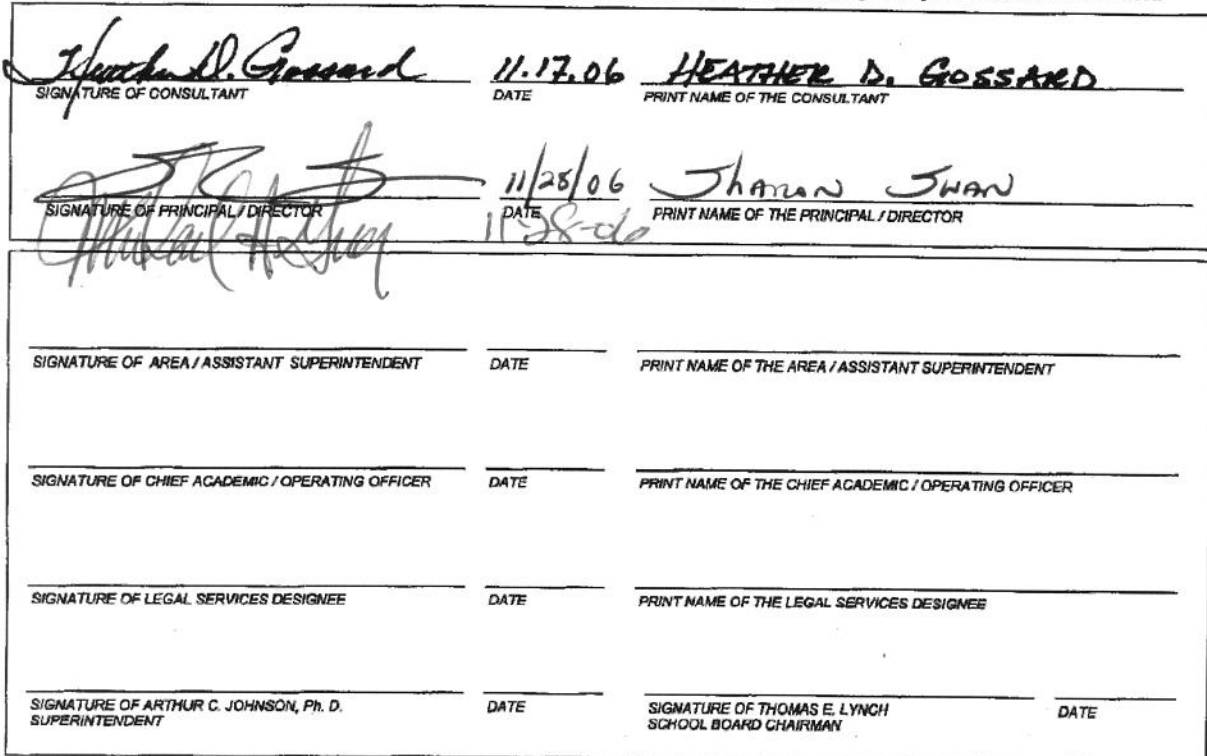 Heather D. Gossard 11.17.06 HEATHER D. GOSSARD
SIGNATURE OF CONSULTANT DATE PRINT NAME OF THE CONSULTANT
11/28/06 Sharon Swan
SIGNATURE OF PRINCIPAL / DIRECTOR DATE PRINT NAME OF THE PRINCIPAL / DIRECTOR
11-28-06
SIGNATURE OF AREA / ASSISTANT SUPERINTENDENT DATE PRINT NAME OF THE AREA / ASSISTANT SUPERINTENDENT
SIGNATURE OF CHIEF ACADEMIC / OPERATING OFFICER DATE PRINT NAME OF THE CHIEF ACADEMIC / OPERATING OFFICER
SIGNATURE OF LEGAL SERVICES DESIGNEE DATE PRINT NAME OF THE LEGAL SERVICES DESIGNEE
SIGNATURE OF ARTHUR C. JOHNSON, Ph. D. DATE SIGNATURE OF THOMAS E. LYNCH DATE
SUPERINTENDENT SCHOOL BOARD CHAIRMAN